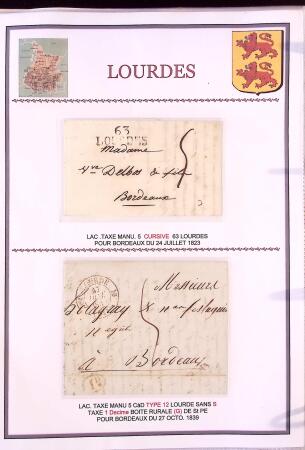 LOURDES
63
LOURDES
Madame
Vve Delbos & fils
Bordeaux
5
LAC .TAXE MANU. 5 CURSIVE 63 LOURDES
POUR BORDEAUX DU 24 JUILLET 1823
Messieurs
à Bordeaux
5
LAC. TAXE MANU 5 CàD TYPE 12 LOURDE SANS S
TAXE 1 Decime BOITE RURALE (G) DE St PE
POUR BORDEAUX DU 27 OCTO. 1839